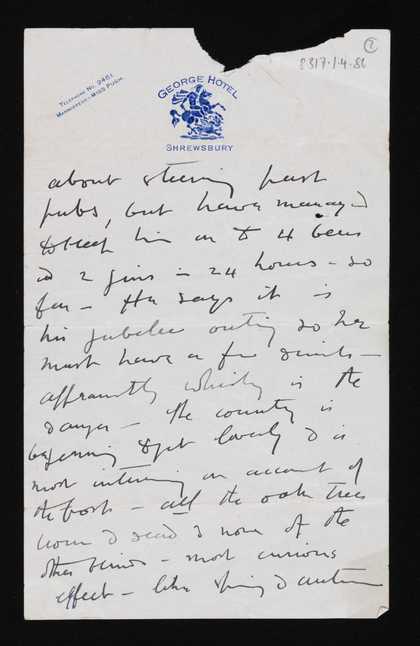 2
8317.1.4.86
TELEPHONE No. 2461
MANAGERESS:- MISS PUGH.
GEORGE HOTEL
SHREWSBURY
about steering past
pubs, but have managed
to keep him on to 4 beers
& 2 gins in 24 hours - so
far - He says it is
his jubilee outing so he
must have a few drinks -
apparently whisky is the
danger - the country is
beginning to get lovely & is
most interesting on account of
the frost - all the oak trees
brown & dead & none of the
other - most curious
effect - like spring & autumn